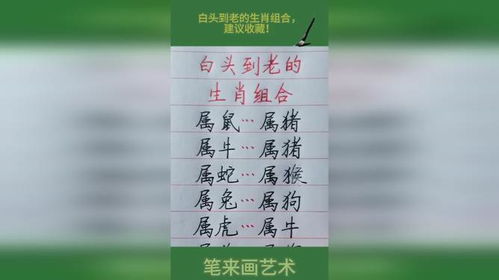 白头到老的生肖组合，
建议收藏！
白头到老的
生肖组合
属鼠…属猪
属牛…属猪
属蛇…属猴
属兔…属狗
属虎…属牛
笔来画艺术